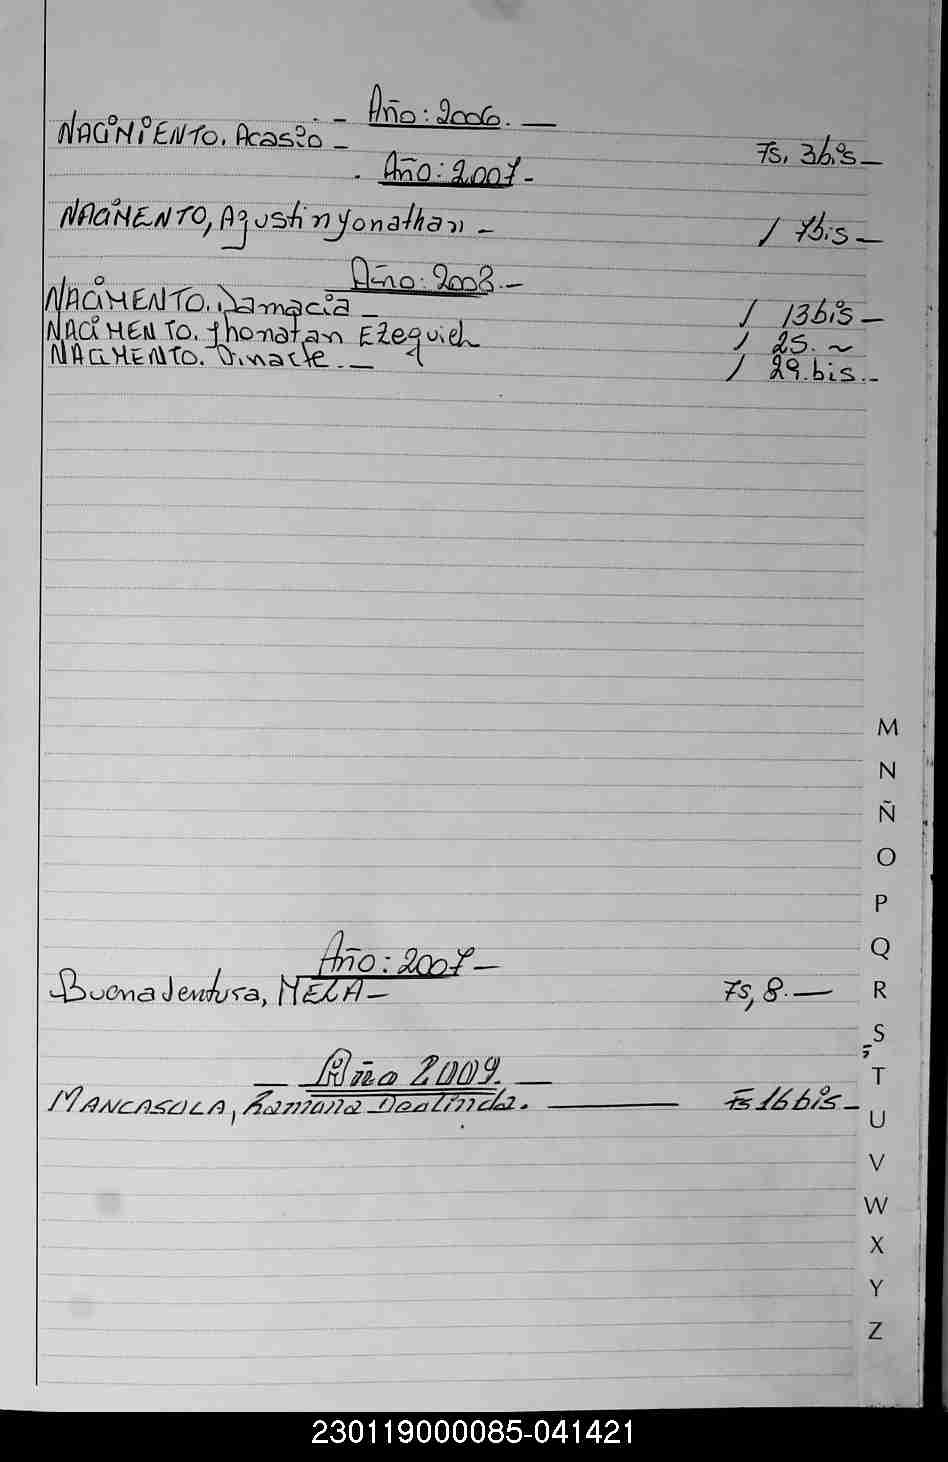 - Año: 2006. -
NACIMIENTO. Acasio - 7s. 3bis -
. Año: 2007 -
NACIMENTO, Agustin yonathan - / 7bis -
Año: 2008 -
NACIMENTO. Damacia - / 13bis -
NACIMENTO. Jhonatan Ezequieh / 25. ~
NACIMENTO. Dinarte. - / 29.bis.-
M
N
Ñ
O
P
Q
Año: 2007 -
Buenadentura, MELA - 7s, 8. -
R
S
T
- Año 2009. -
MANCASOLA, Ramona Deolinda. - Fs 16 bis -
U
V
W
X
Y
Z
230119000085-041421